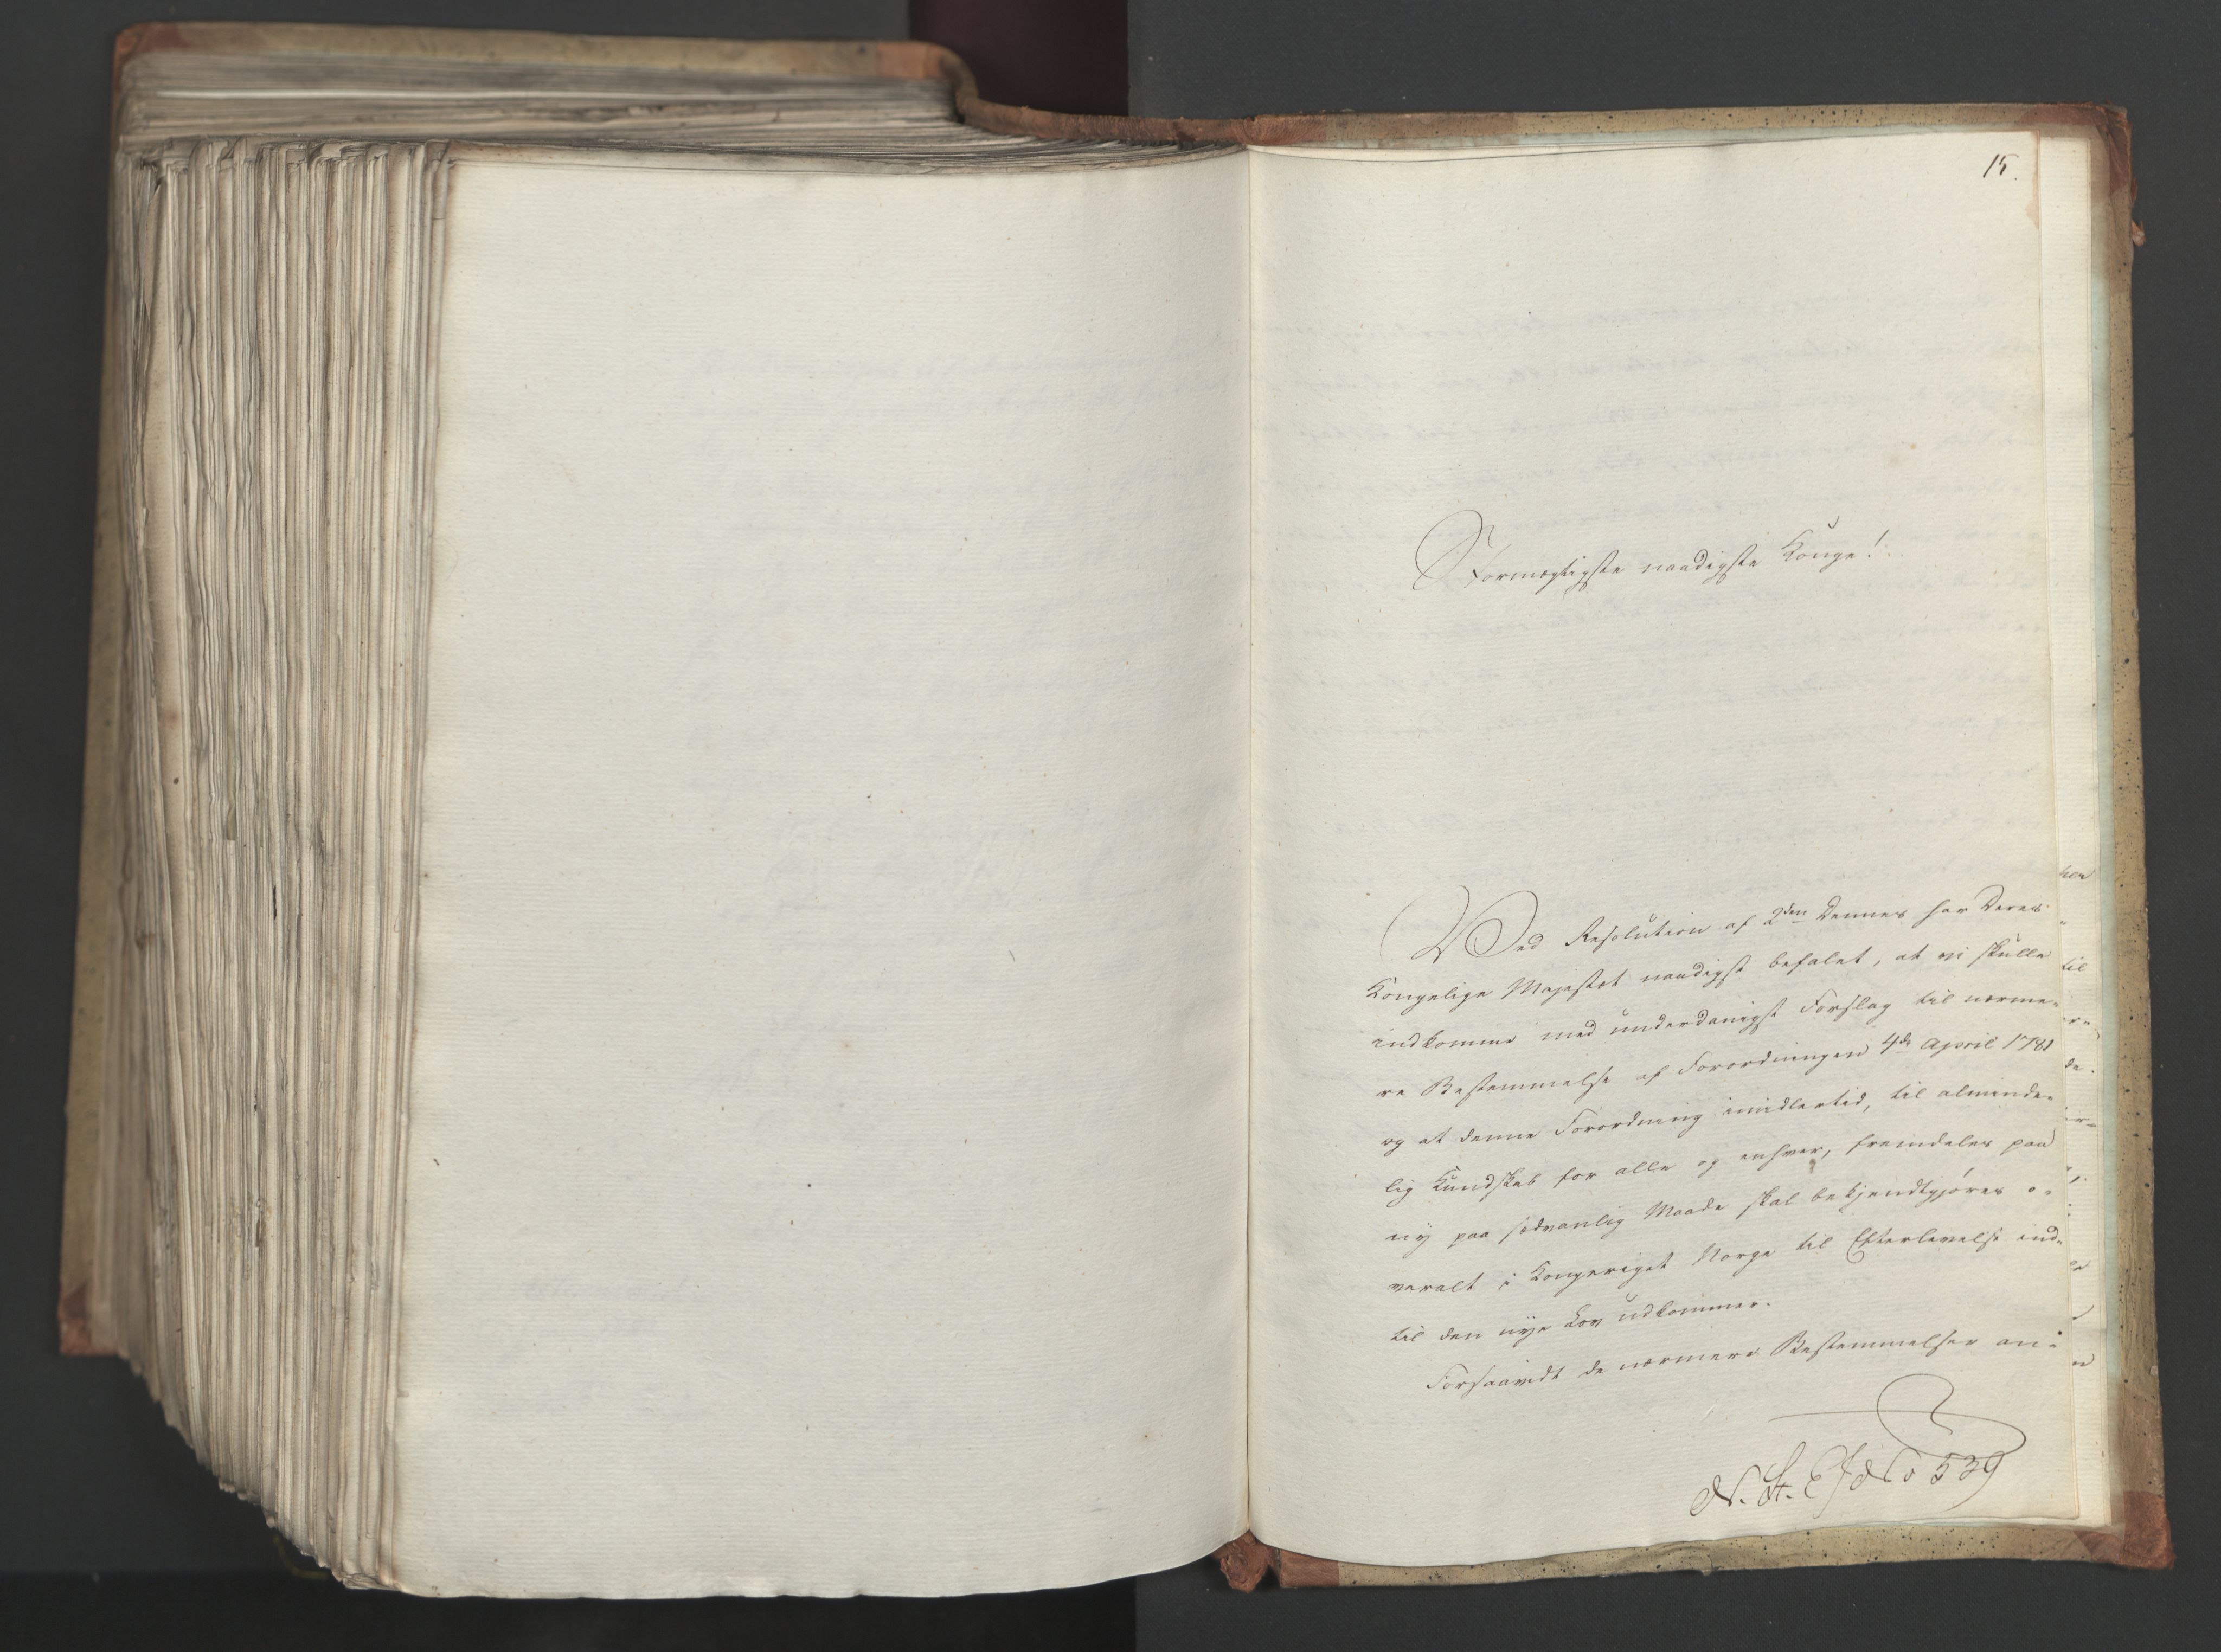 15.
Stormægtigste naadigste Konge!
Ved Resolution af 2den Dennes har Deres
Kongelige Majestæt naadigst befalet, at vi skulle
indkomme med underdanigst Forslag til nærme-
re Bestemmelse af Forordningen 4de April 1781
og at denne Forordning imidlertid, til alminde-
lig Kundskab for alle og enhver, fremdeles paa
ny paa sædvanlig Maade skal bekjendtgjøres o-
veralt i Kongeriget Norge til Efterlevelse ind-
til den nye Lov udkommer.
Forsaavidt de nærmere Bestemmelser an-
N. St. E J No 539
til